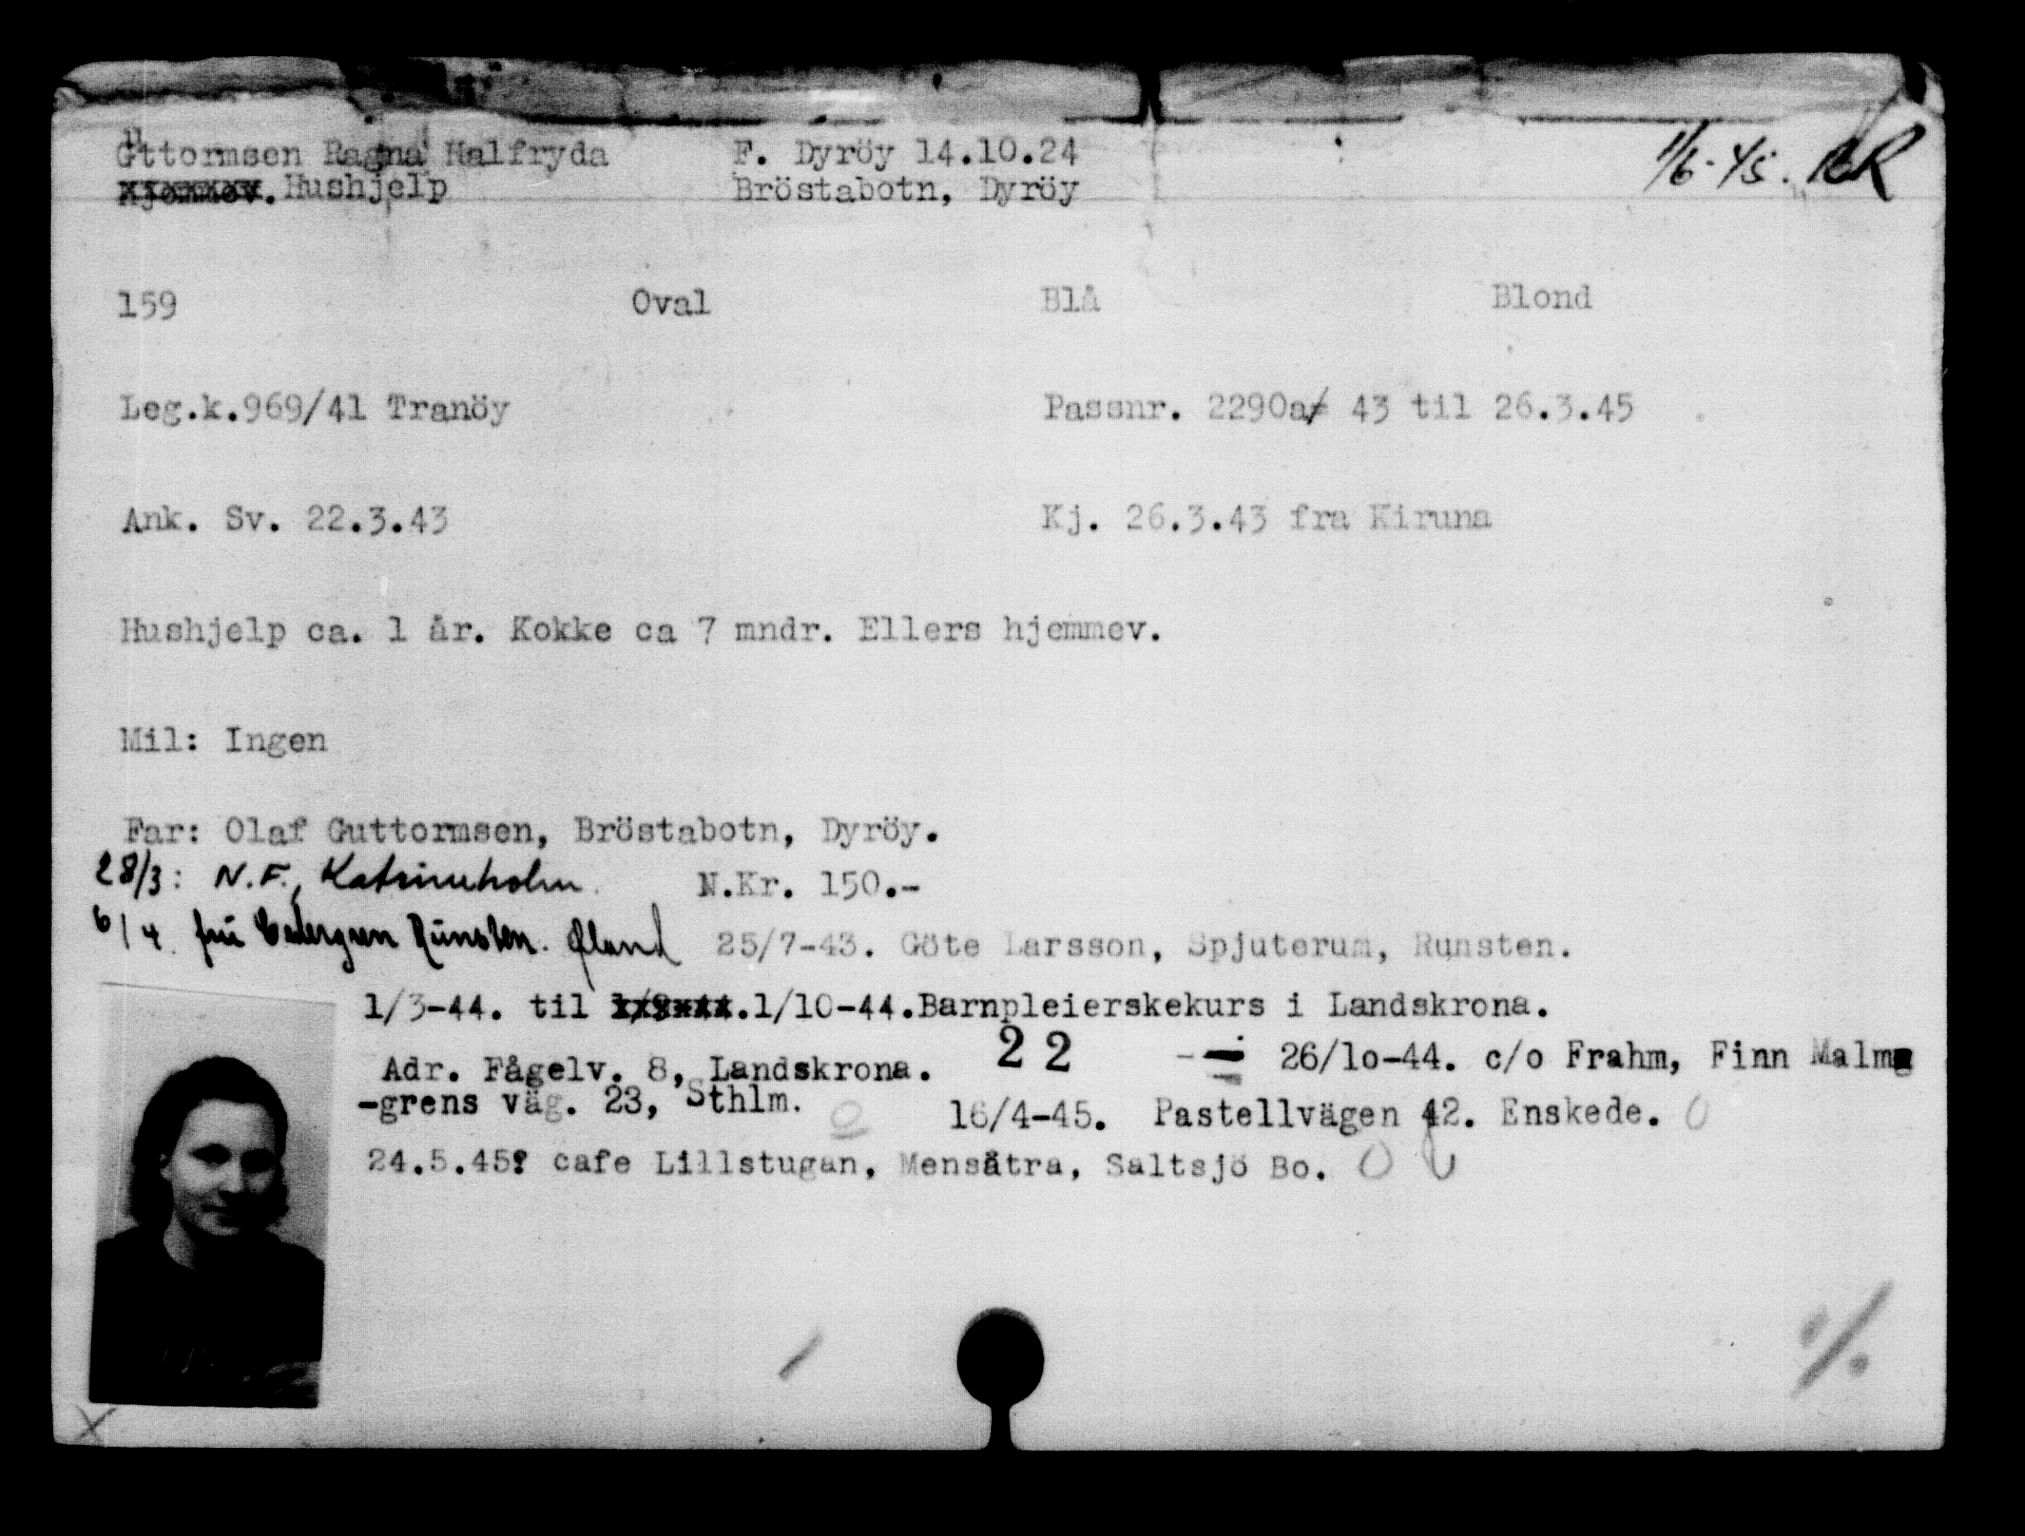 Guttormsen Ragna Halfryda F. Dyröy 14.10.24 1/6-45.
Hjemmev. Hushjelp Bröstabotn, Dyröy
159 Oval Blå Blond
Leg.k.969/41 Tranöy Passnr. 2290a/ 43 til 26.3.45
Ank. Sv. 22.3.43 Kj. 26.3.43 fra Kiruna
Hushjelp ca. 1 år. Kokke ca 7 mndr. Ellers hjemmev.
Mil: Ingen
Far: Olaf Guttormsen, Bröstabotn, Dyröy.
28/3: N.F., Katrineholm. N.Kr. 150.-
6/4. fru Cedergren Runsten. Øland 25/7-43. Göte Larsson, Spjuterum, Runsten.
1/3-44. til 1/10-44.Barnpleierskekurs i Landskrona.
Adr. Fågelv. 8, Landskrona. 22 -- 26/lo-44. c/o Frahm, Finn Malm
-grens väg. 23, Sthlm. 0 16/4-45. Pastellvägen 42. Enskede. 0
24.5.45: cafe Lillstugan, Mensätra, Saltsjö Bo. 0
%
X